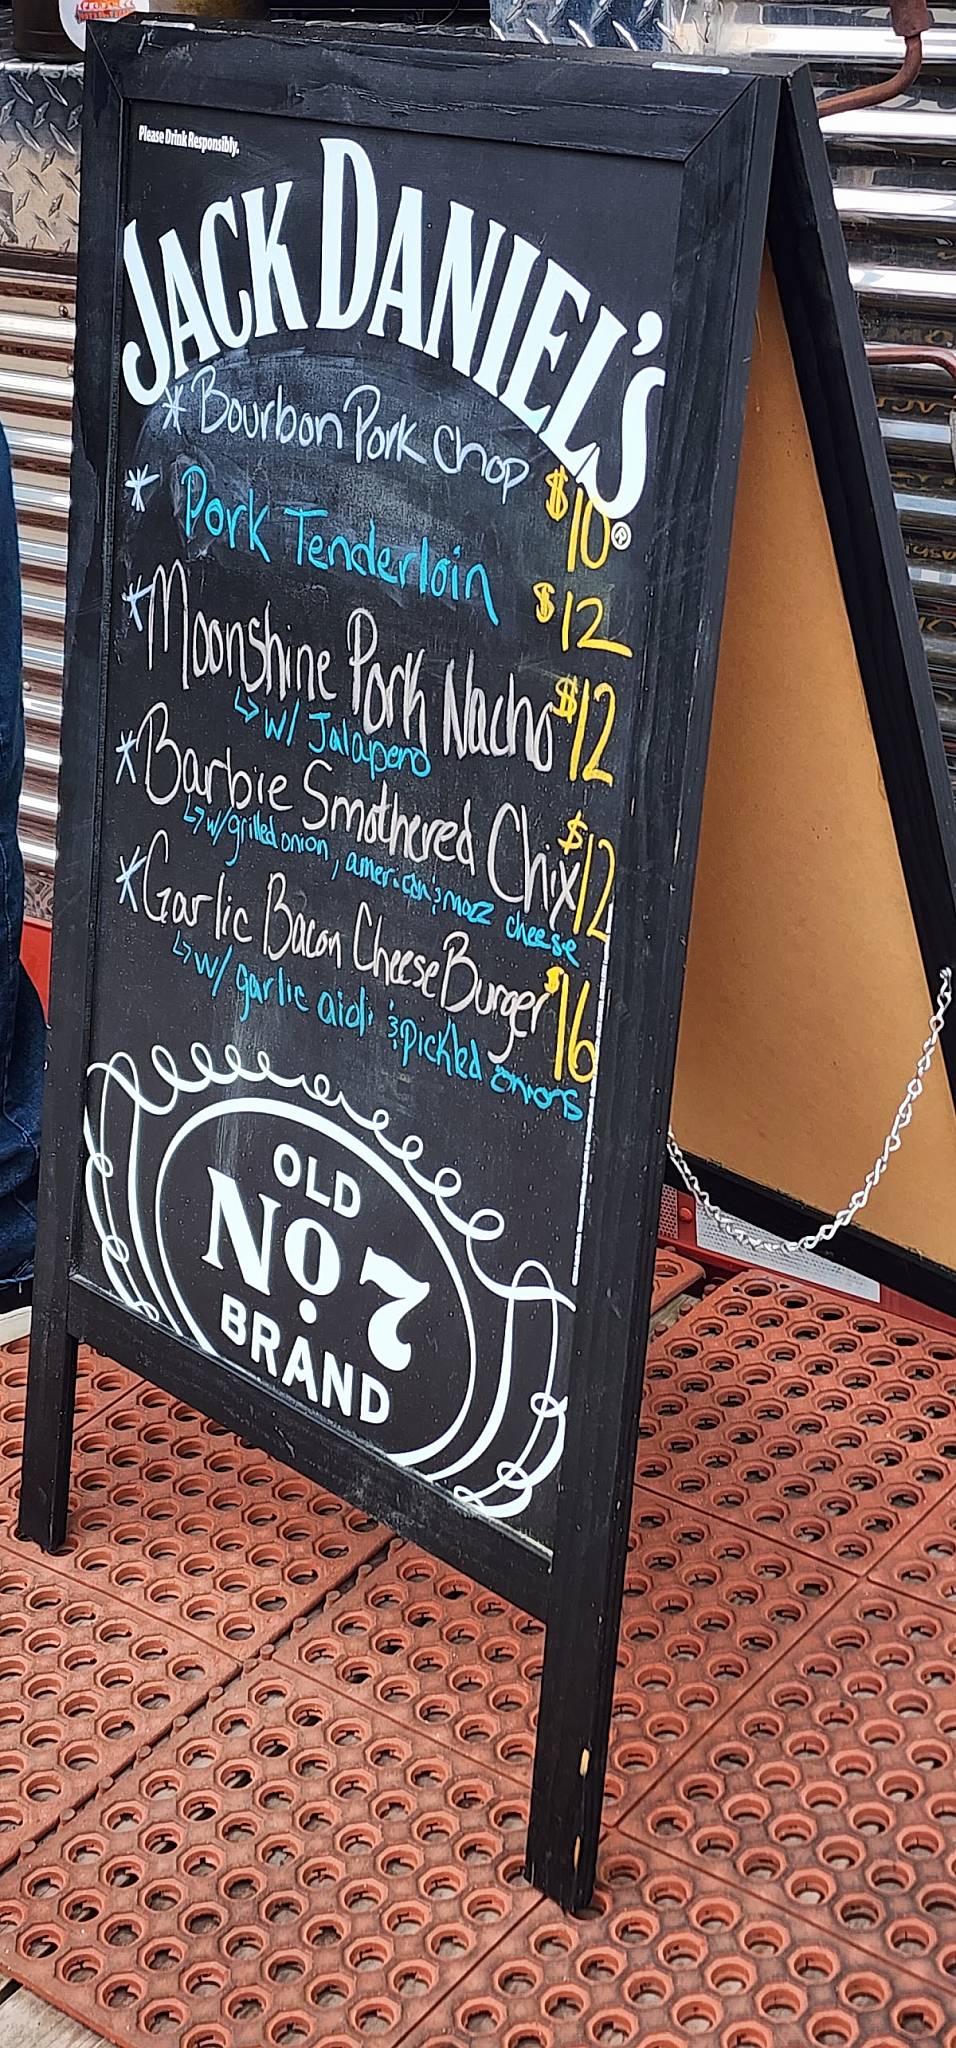 Please Drink Responsibly.
JACK DANIEL'S
* Bourbon Pork Chop $10 ®
* Pork Tenderloin $12
* Moonshine Pork Nacho $12
↳ w/ Jalapero
* Barbie Smothered Chix $12
↳ w/ grilled onion, american & mozz cheese
* Garlic Bacon Cheese Burger $16
↳ w/ garlic aioli & pickled onions
OLD
No. 7
BRAND